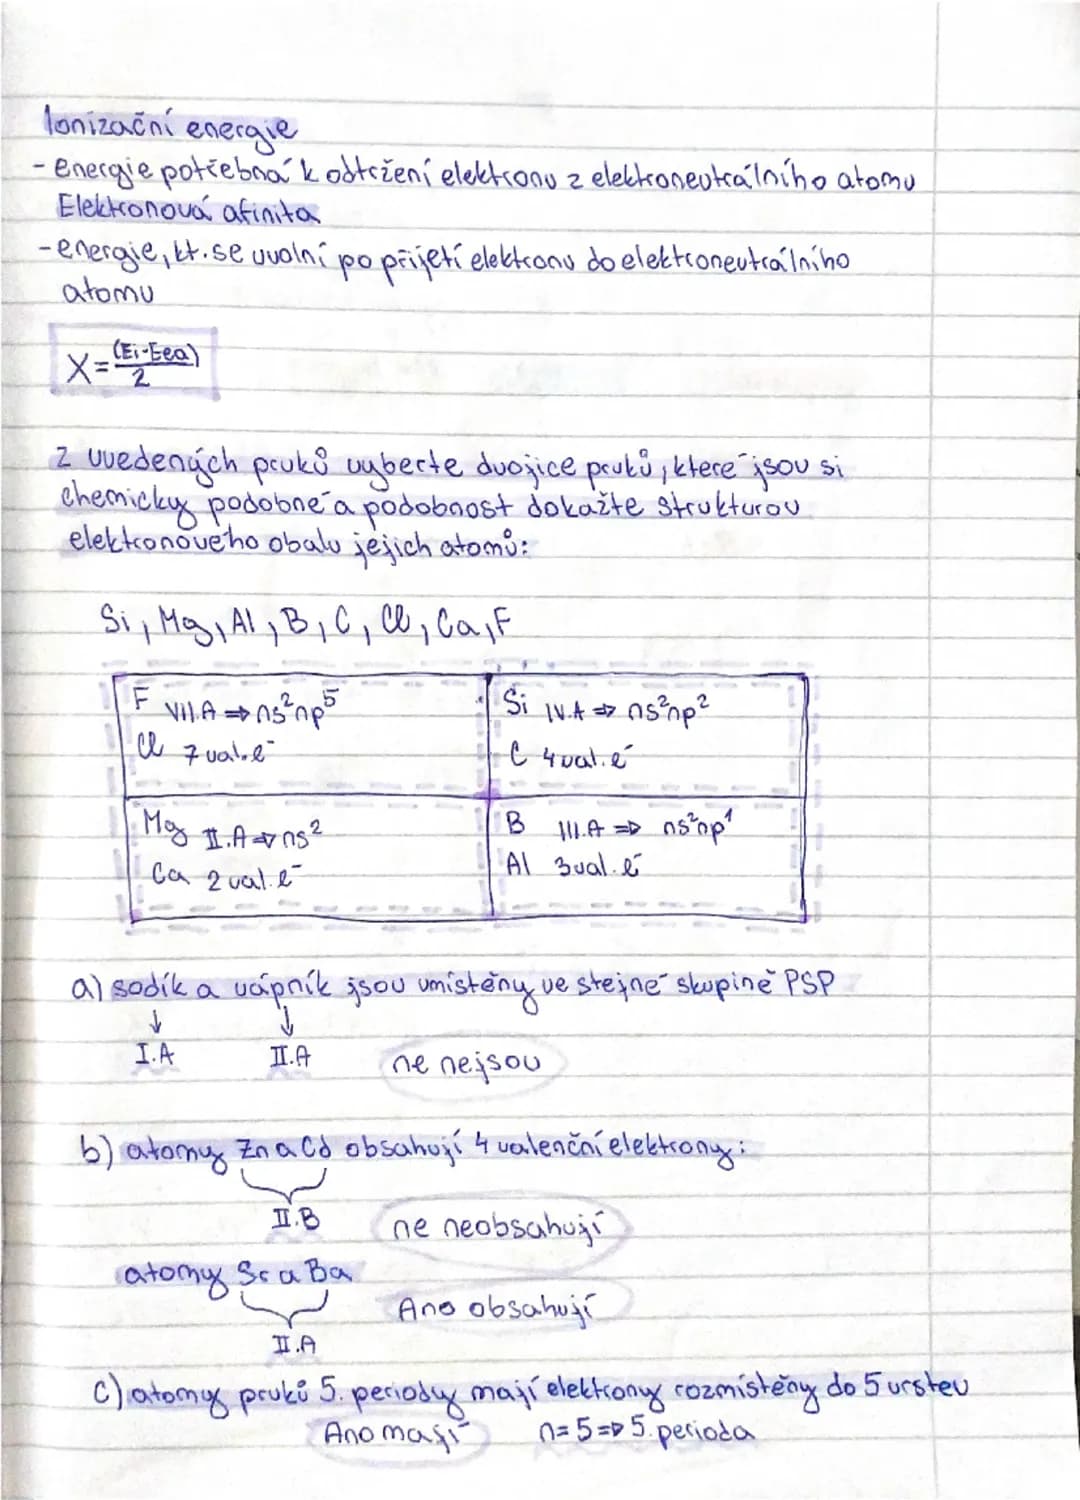 Ionizační energie
- energie potřebná k odtržení elektronu z elektroneutrálního atomu
Elektronová afinita
- energie, kt. se uvolní po přijetí elektronu do elektroneutrálního
atomu
X = (Ei-Eea)/2
Z uvedených prvků vyberte dvojice prvků, které jsou si
chemicky podobné a podobnost dokažte strukturou
elektronového obalu jejich atomů:
Si, Mg, Al, B, C, Cl, Ca, F
F VII.A ⇒ ns²np⁵
Cl 7 val. e⁻
Si IV.A ⇒ ns²np²
C 4 val. e⁻
Mg II.A ⇒ ns²
Ca 2 val. e⁻
B III.A ⇒ ns²np¹
Al 3 val. e⁻
a) sodík a vápník jsou umístěny ve stejné skupině PSP
↓ ↓
I.A II.A ne nejsou
b) atomy Zn a Cd obsahují 4 valenční elektrony:
II.B ne neobsahují
atomy Sr a Ba
Ano obsahují
II.A
c) atomy prvků 5. periody mají elektrony rozmístěny do 5 vrstev
Ano mají n = 5 ⇒ 5. perioda